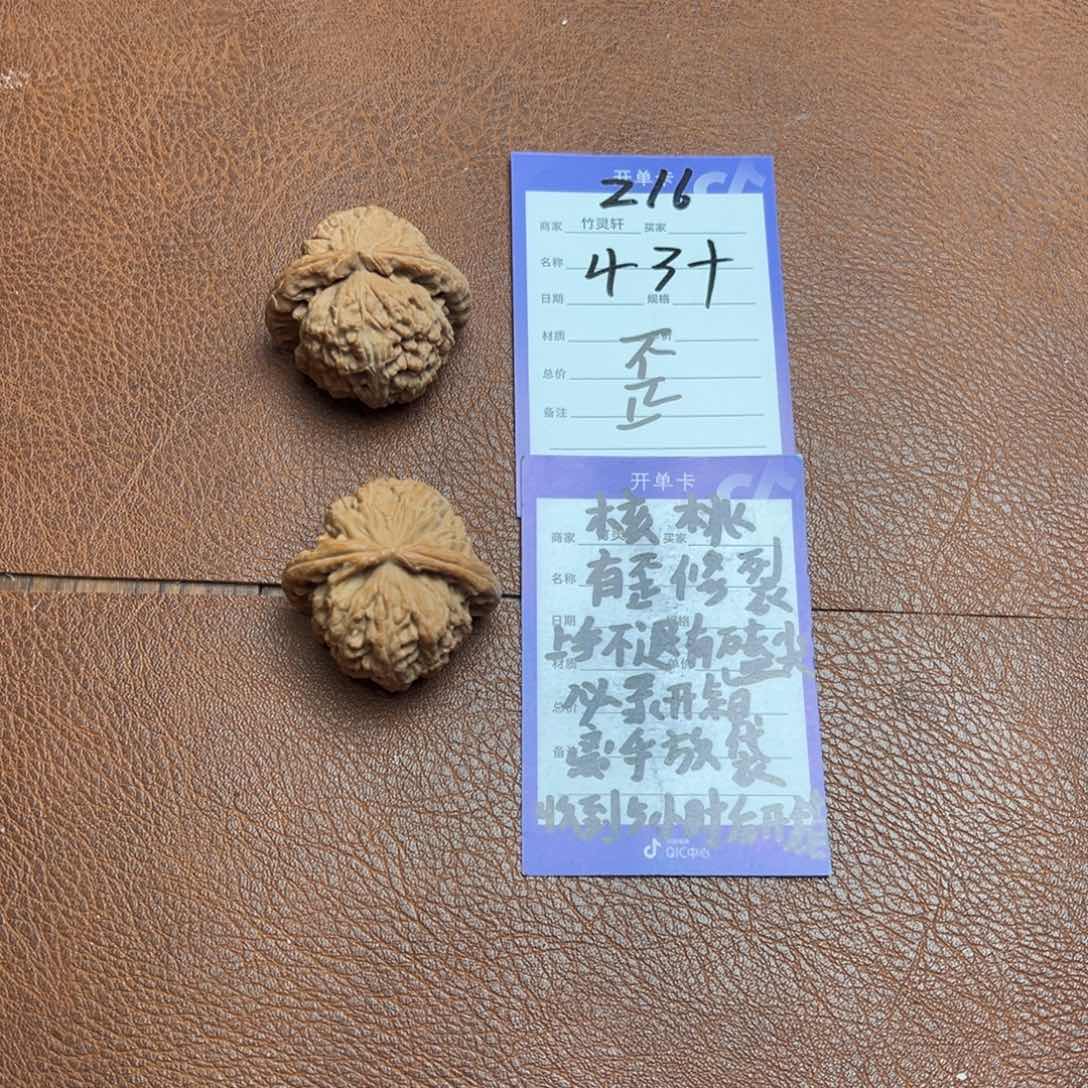 开单卡
216
商家 竹灵轩 买家
名称 43+
日期 规格
材质 单价
歪
总价
备注
开单卡
核桃
商家 买家
有歪修裂
名称
日期 规格
上手不退有磕尖
材质 单价
必录开箱
总价
盘手放袋
备注
收到5小时后开袋
QIC中心